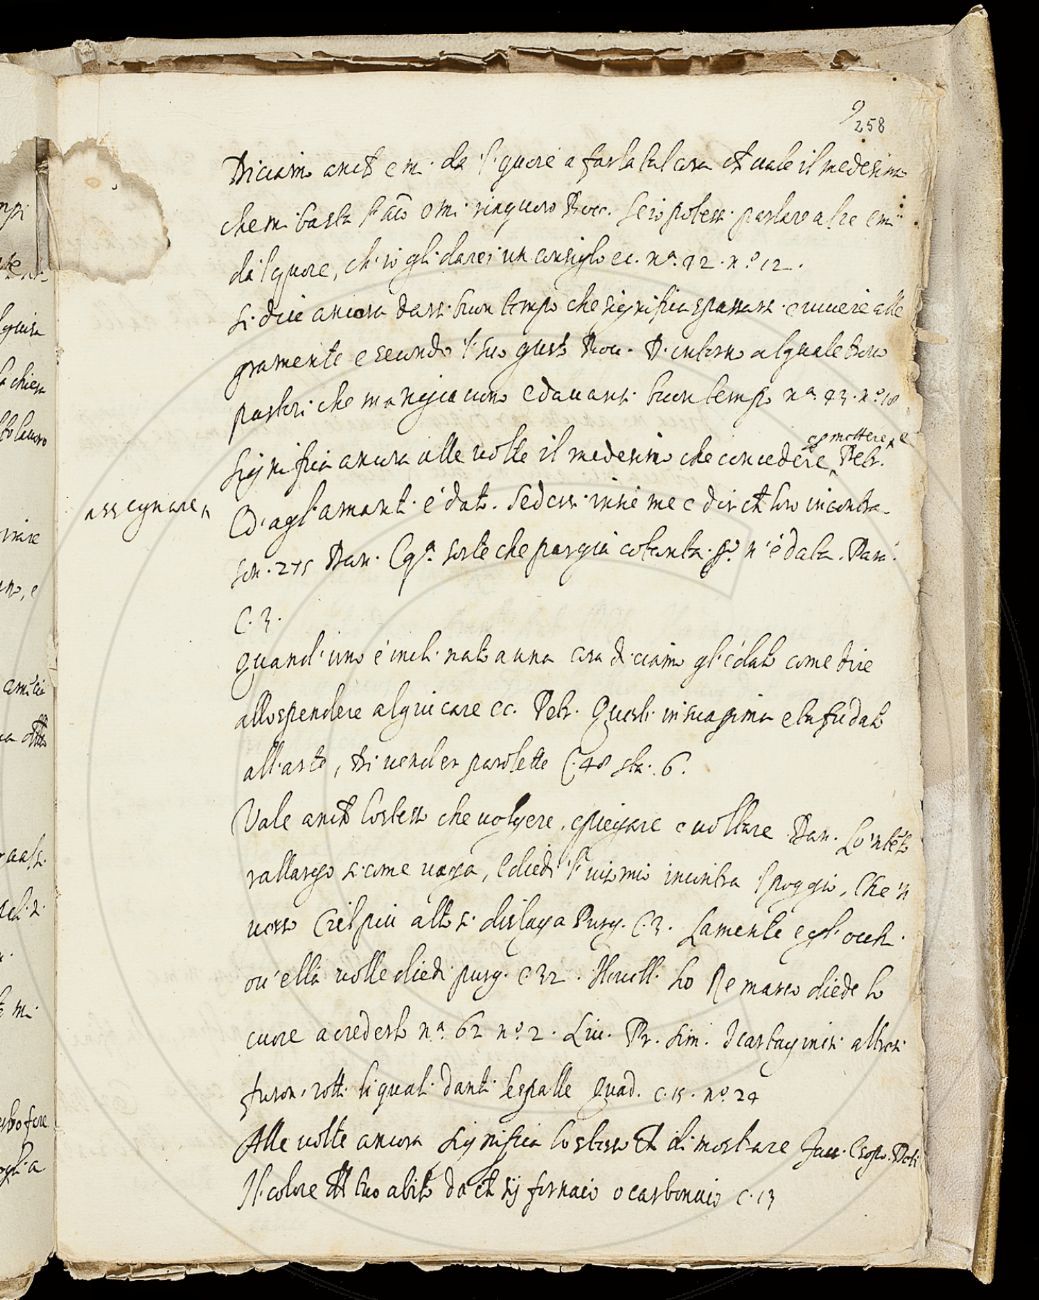 9
258
Diciamo anch e mi dà 'l quore a far la tal cosa ch vale il medesimo
che mi basta l'aīo o mi rinquoro Bocc. se io potessi parlare a lre e mi
dà 'l quore, ch'io gli darei un consiglo ec. nª 92. nº 12.
Si dice ancora darsi buon tempo che significa spassarsi e vivere alle
gramente e secondo 'l suo gusto Bocc. D'intorno al quale
pastori che mangiavano e davansi buon tempo nª 43. nº 18
Significa ancora alle volte il medesimo che concedere, o mettere Petr.
assegnare
Ch'agl'amanti è dato. Sedersi insieme e dir ch loro incontra.
Son. 275 Dan. E qª sorte che par giù cotanta. pº n'è data. Para.
C. 3.
Quand'uno è inclinato a una cosa diciamo gl'è dato come dire
allo spendere al giuicare ec. Petr. Questi in sua prima età fu dato
all'arte, Di vender parolette C. 48 sta. 6.
Vale anch lo stesso che volgere, e piegare e voltare Dan. Lo 'ntēto
rallargò sì come vaga, E diedi 'l viso mio incontra 'l poggio, Che 'n
verso Ciel più alto si dislaga Purg. C. 3. La mente e gl'occhi
ov'ella volle diedi purg. C 32. Novell. Lo Re marco diede lo
cuore a crederlo nª 62 nº 2. Liv. Pr. Sim. I cartaginesi altresi
furon rotti li quali danti le spalle Quad. c. 15. nº 24
Alle volte ancora significa lo stesso ch dimostrare Fav. Esop.
Il colore del tuo abito dà ch sij fornaio o carbonaio c. 13